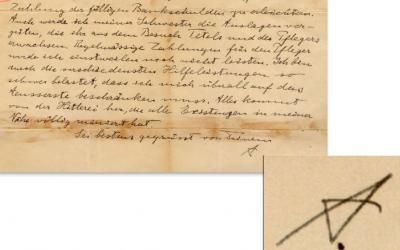 Zahlung der fälligen Bankschulden zu erleichtern.
Auch werde ich meiner Schwester die Auslagen ver-
güten, die ihr aus dem Besuch Tetels und des Pflegers
erwachsen. Regelmässige Zahlungen für den Pfleger
werde ich einstweilen noch nicht leisten. Ich bin
durch die verschiedensten Hilfeleistungen so
schwer belastet, dass ich mich überall auf das
Äusserste beschränken muss. Alles kommt
von der Hitlerei her, die alle Existenzen in meiner
Nähe völlig ruiniert hat
Sei bestens gegrüsst von Deinem
A
A